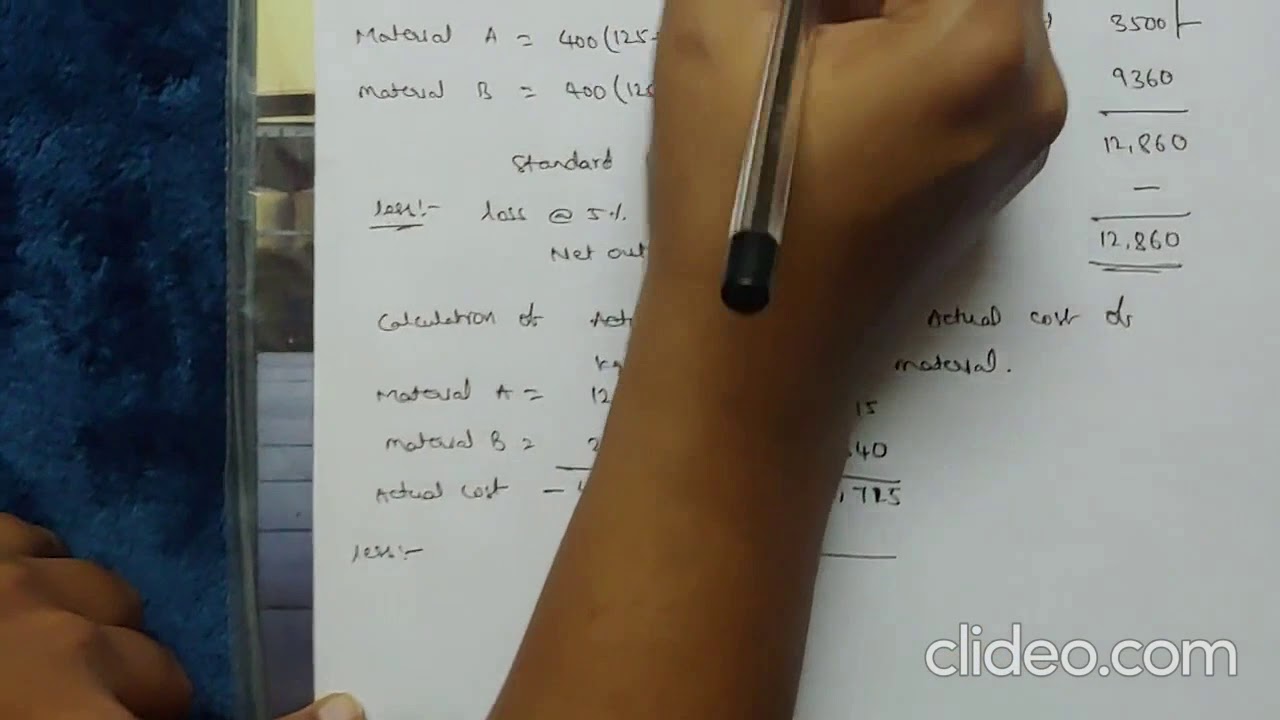 Material A = 400(125 3500/-
Material B = 400(125 9360
12,860
Standard
—
less:- loss @ 5%
12,860
Net out
Calculation of Actual cost of
kg material.
Material A = 12 15
Material B = 2 40
Actual cost — 4 ,725
less:-
clideo.com